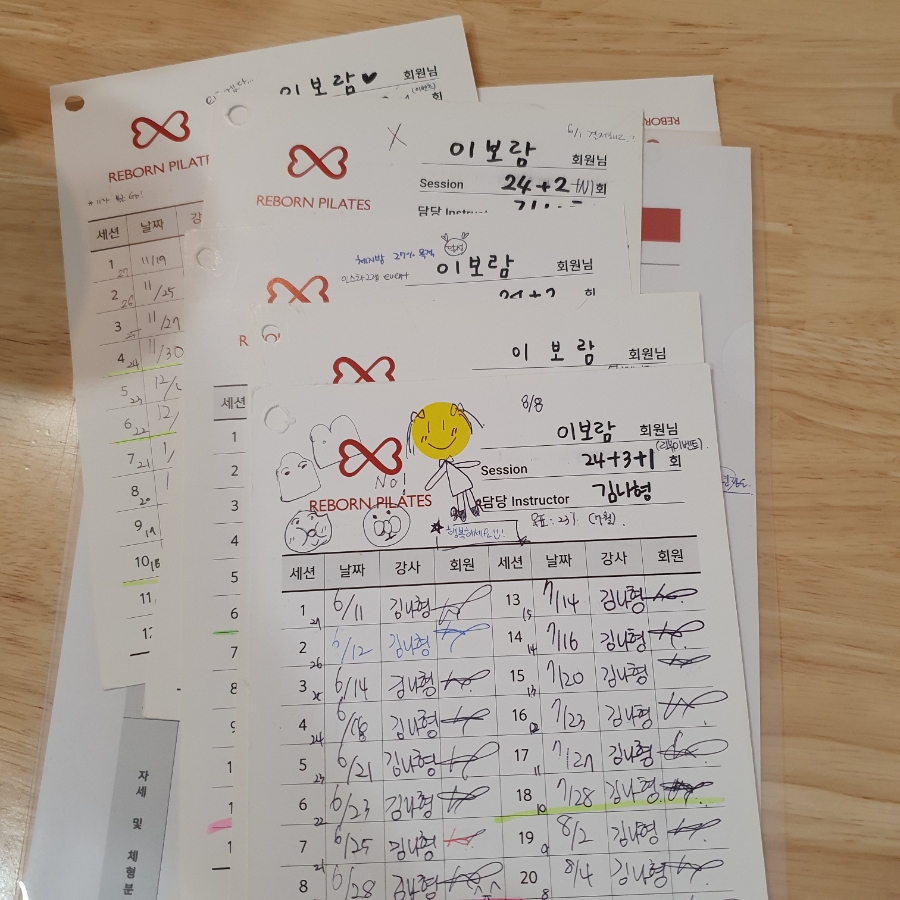 이보람♥ 회원님
회
REBORN PILAT
세션 날짜 강
1 11/19
2 11/25
3 11/27
4 24 11/30
5 23 12/
6 22 12/
7 21
8 20
9 19
10 18
11
REBORN
X
이보람 회원님
Session 24+2 회
REBORN PILATES
담당
체지방 27% 목적
인스타그램 event
이보람 회원님
24+2 회
R
세션
1
2
3
4
5
6
7
8
이보람 회원님
8/8
이보람 회원님
(리뷰이벤트).
Session 24+3+1 회
No!
REBORN PILATES
담당 Instructor 김나형
목표: 23% (7월).
★행복하세요!
세션 날짜 강사 회원 세션 날짜 강사 회원
1 27 6/11 김나형 13 15 7/14 김나형
2 26 6/12 김나형 14 14 7/16 김나형
3 6/14 김나형 15 13 7/20 김나형
4 24 6/18 김나형 16 12 7/23 김나형
5 23 6/21 김나형 17 11 7/27 김나형
6 22 6/23 김나형 18 10 7/28 김나형
7 21 6/25 김나형 19 9 8/2 김나형
8 6/28 김나형 20 8 8/4 김나형
자세 및 체형분